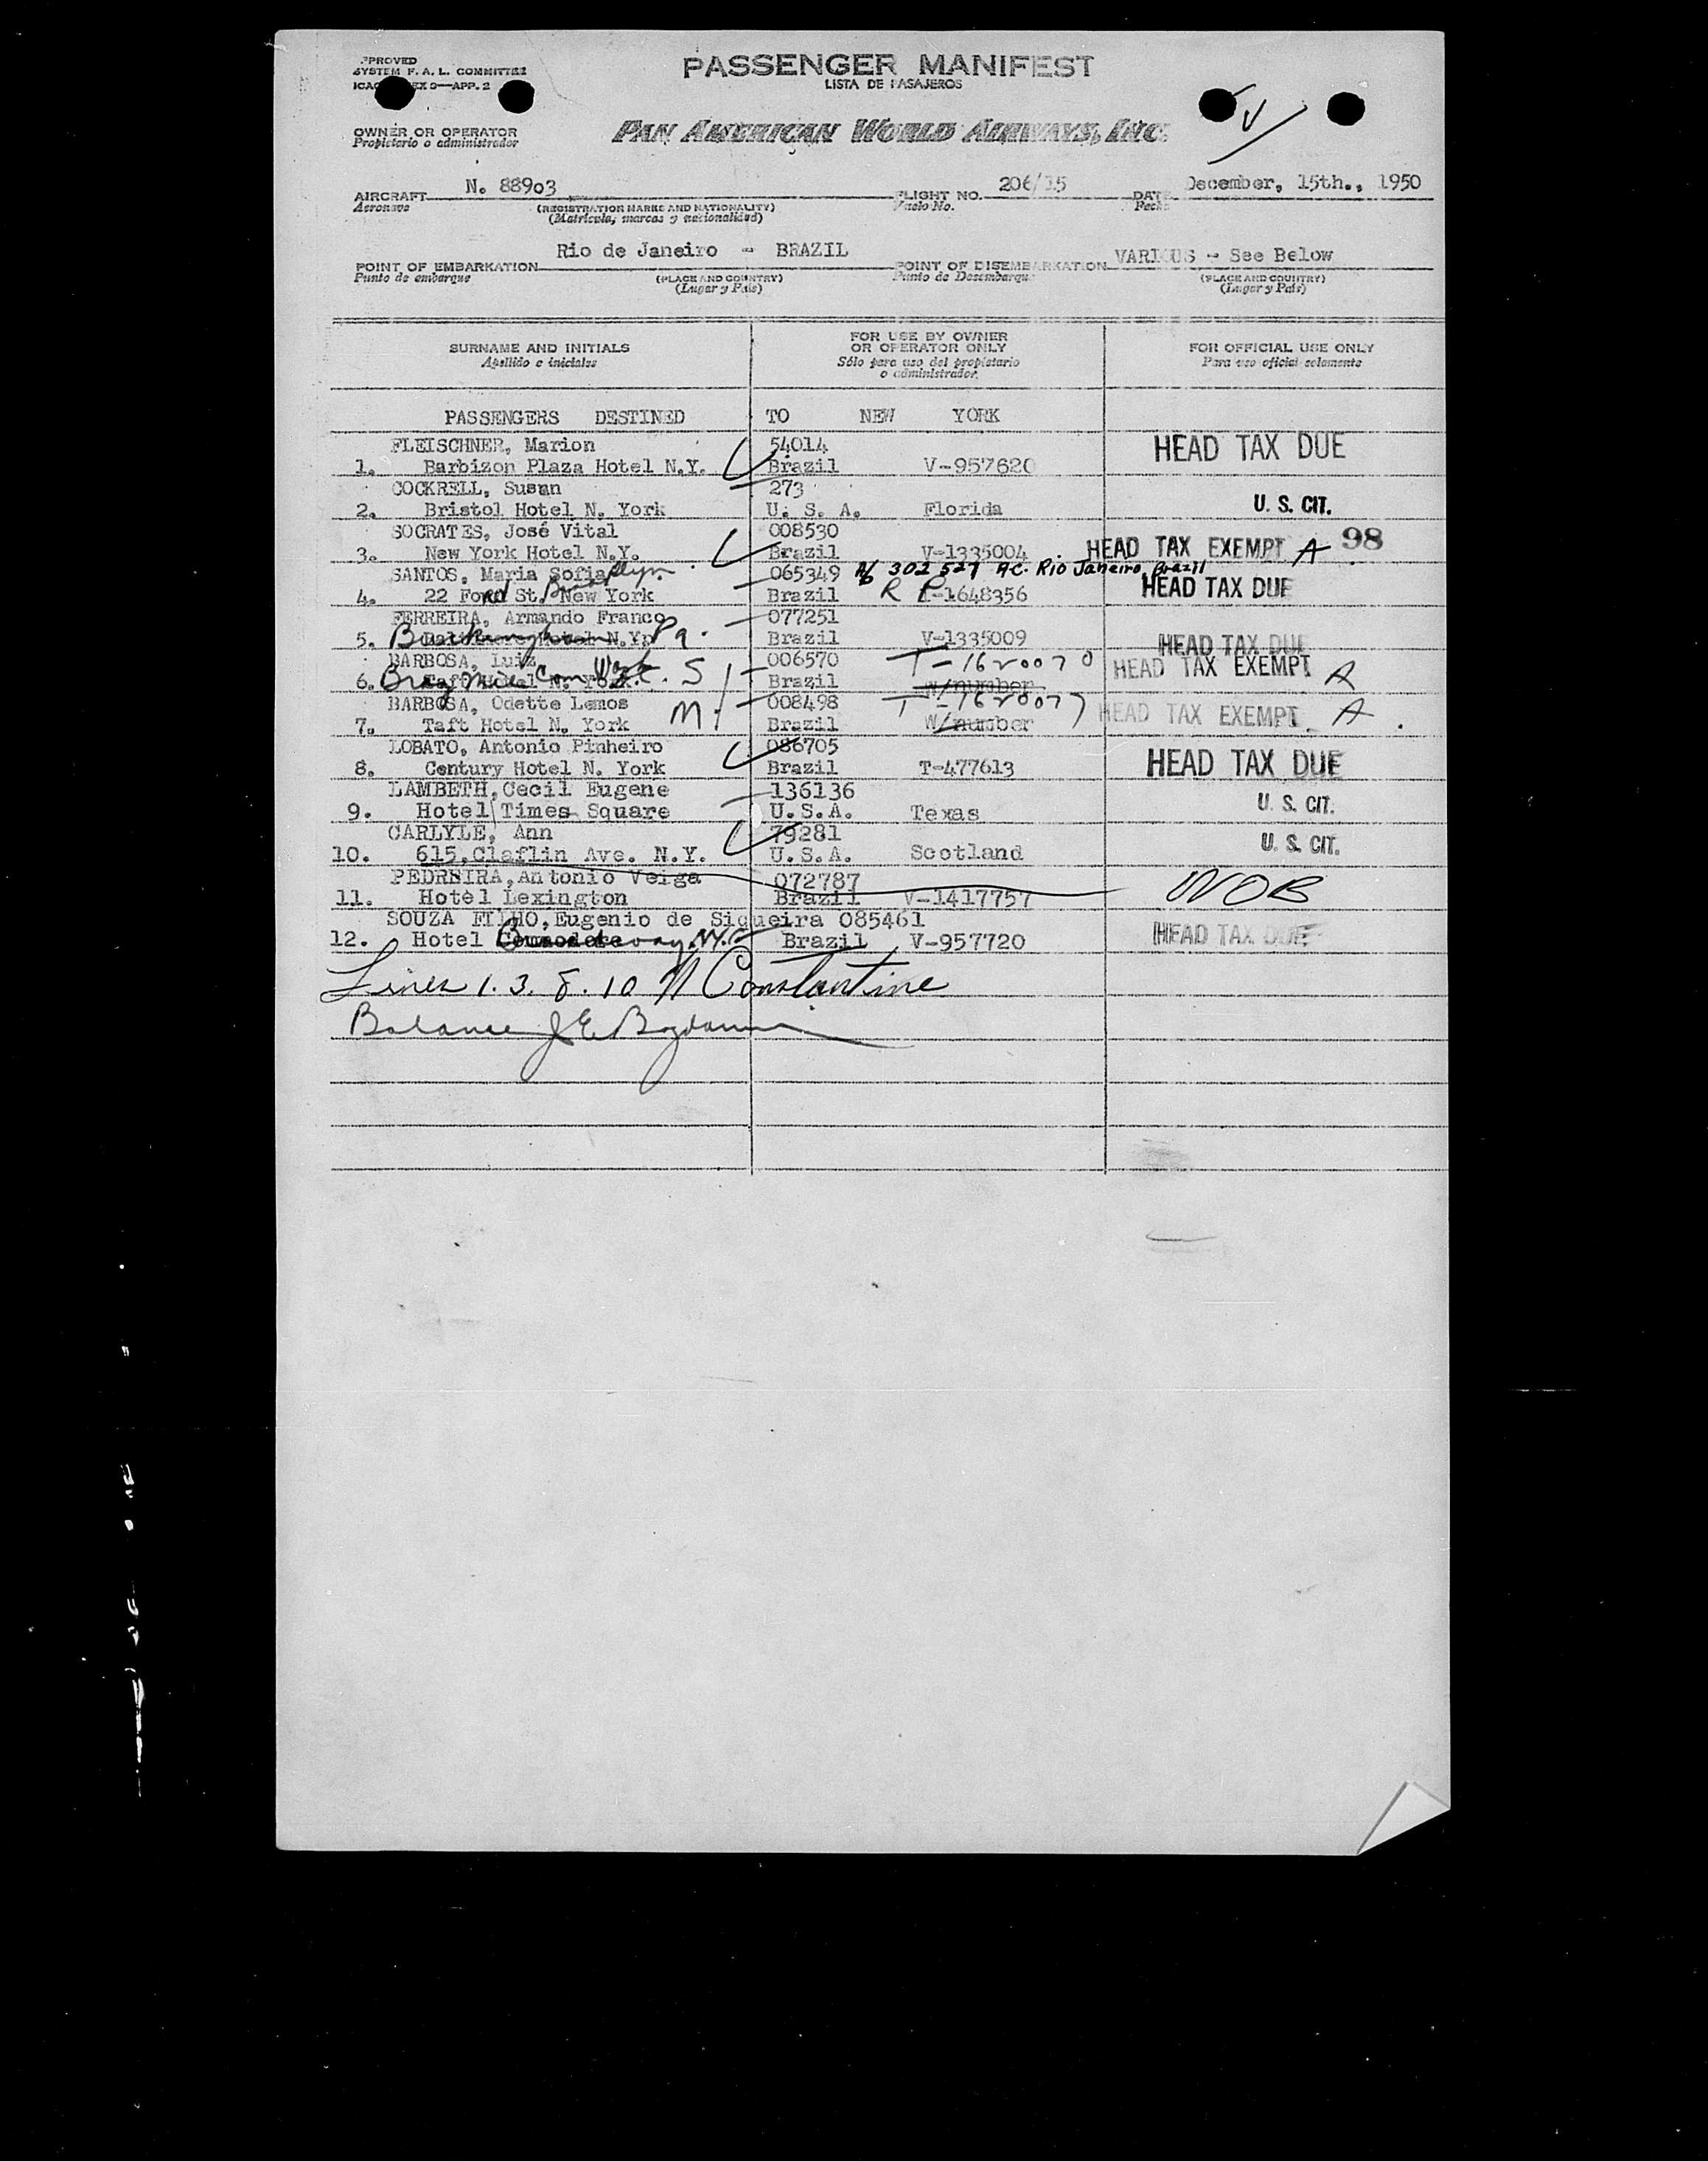 PASSENGER MANIFEST
LISTA DE PASAJEROS
SYSTEM F. A. L. COMMITTEE
APP. 2
OWNER OR OPERATOR
Propietario o administrador
PAN AMERICAN WORLD AIRWAYS, INC.
AIRCRAFT N. 88903 FLIGHT NO. 206/15 DATE December, 15th., 1950
Aeronave (REGISTRATION MARKS AND NATIONALITY) Vuelo No. Fecha
(Matrícula, marcas y nacionalidad)
POINT OF EMBARKATION Rio de Janeiro - BRAZIL POINT OF DISEMBARKATION VARIOUS - See Below
Punto de embarque (PLACE AND COUNTRY) Punto de Desembarque (PLACE AND COUNTRY)
(Lugar y País) (Lugar y País)
SURNAME AND INITIALS FOR USE BY OWNER OR OPERATOR ONLY FOR OFFICIAL USE ONLY
Apellido e iniciales Sólo para uso del propietario o administrador. Para uso oficial solamente
PASSENGERS DESTINED TO NEW YORK
FLEISCHNER, Marion 54014 HEAD TAX DUE
1. Barbizon Plaza Hotel N.Y. Brazil V-957620
COCKRELL, Susan 273
2. Bristol Hotel N. York U. S. A. Florida U. S. CIT.
SOCRATES, José Vital 008530
3. New York Hotel N.Y. Brazil V-1335004 HEAD TAX EXEMPT A 98
SANTOS, Maria Sofia 065349 302527 AC. Rio Janeiro, Brazil
4. 22 Ford St. New York Brazil R P -1648356 HEAD TAX DUE
FERREIRA, Armando Franco 077251
5. Hotel N.Y. Pa. Brazil V-1335009 HEAD TAX DUE
BARBOSA, Luiz 006570 T-1620070 HEAD TAX EXEMPT A
6. Taft Hotel N. York S Brazil w/number
BARBOSA, Odette Lemos M 008498 T-1620077 HEAD TAX EXEMPT A
7. Taft Hotel N. York Brazil W/number
LOBATO, Antonio Pinheiro 086705
8. Century Hotel N. York Brazil T-477613 HEAD TAX DUE
LAMBETH, Cecil Eugene 136136
9. Hotel Times Square U.S.A. Texas U. S. CIT.
CARLYLE, Ann 79281
10. 615, Claflin Ave. N.Y. U.S.A. Scotland U. S. CIT.
PEDREIRA, Antonio Veiga 072787
11. Hotel Lexington Brazil V-1417757 NOB
SOUZA FILHO, Eugenio de Siqueira 085461
12. Hotel Commodore Brazil V-957720 HEAD TAX DUE
Lines 1. 3. 8. 10 N Constantine
Balance J E